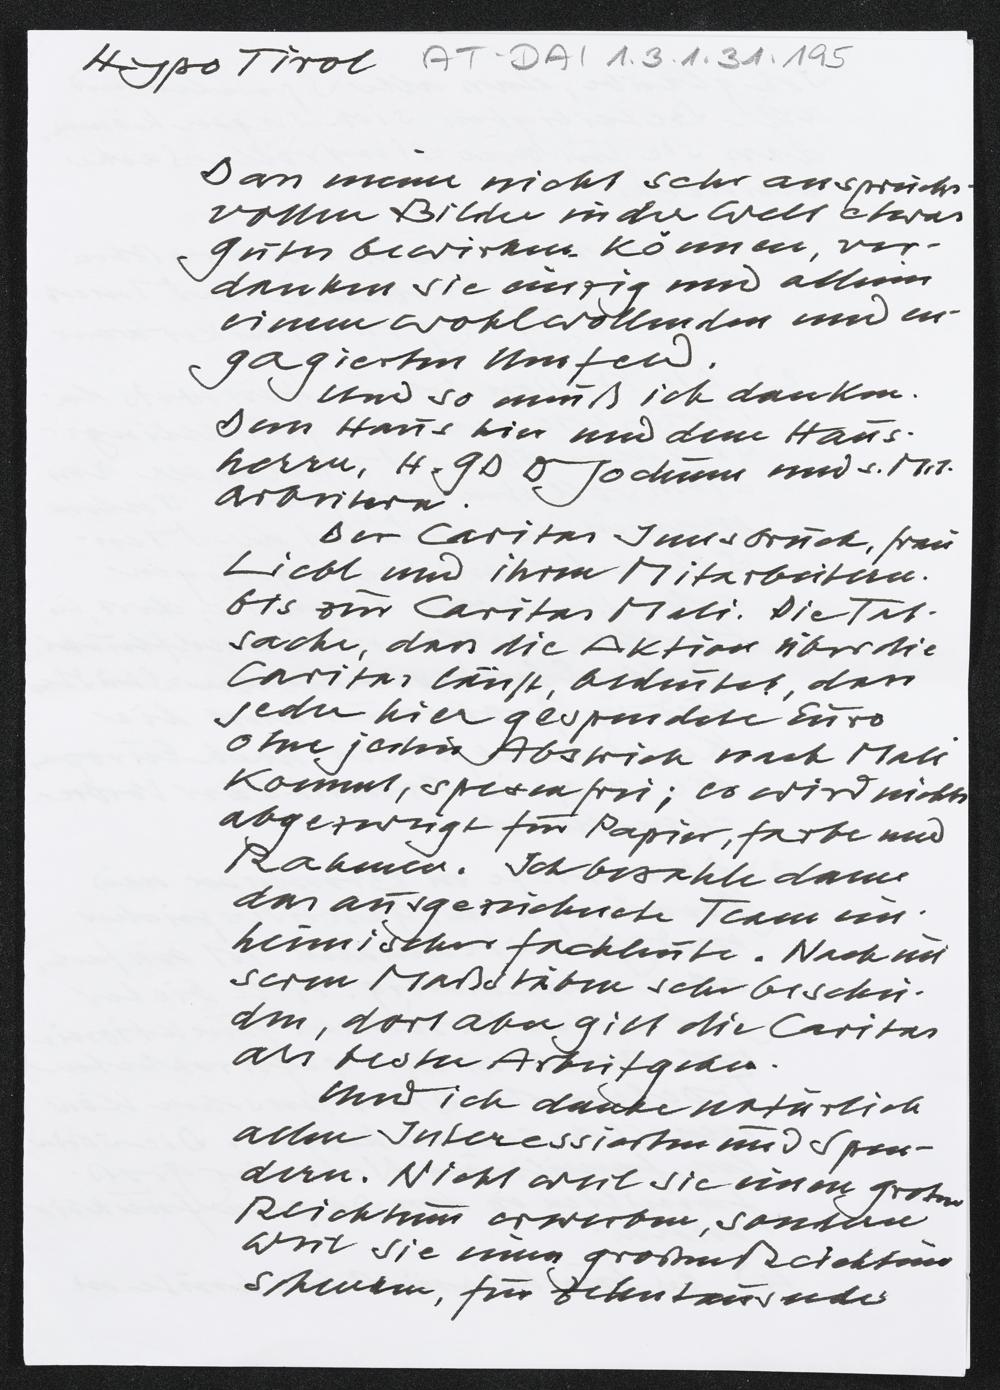 Hypo Tirol AT-DAI 1.3.1.31.195
Dass meine nicht sehr anspruchs-
vollen Bilder in der Welt etwas
Gutes bewirken können, ver-
danken sie einzig und allein
einem wohlwollenden und en-
gagierten Umfeld.
Und so muß ich danken.
Dem Haus hier und dem Haus-
herrn, H. GD D Jochum und s. Mit-
arbeitern.
Der Caritas Innsbruck, Frau
Liebl und ihren Mitarbeitern.
bis zur Caritas Mali. Die Tat-
sache, dass die Aktion über die
Caritas läuft, bedeutet, dass
jeder hier gespendete Euro
ohne jeden Abstrich nach Mali
kommt, spesenfrei; es wird nichts
abgezweigt für Papier, Farbe und
Rahmen. Ich bezahle damit
das ausgezeichnete Team ein-
heimischer Fachleute. Nach un
seren Maßstäben sehr beschei-
den, dort aber gilt die Caritas
als bester Arbeitgeber.
Und ich danke natürlich
allen Interessierten und Spen-
dern. Nicht weil sie einen großen
Reichtum erwerben, sondern
weil sie einen großen Reichtum
schenken, für Zehntausende